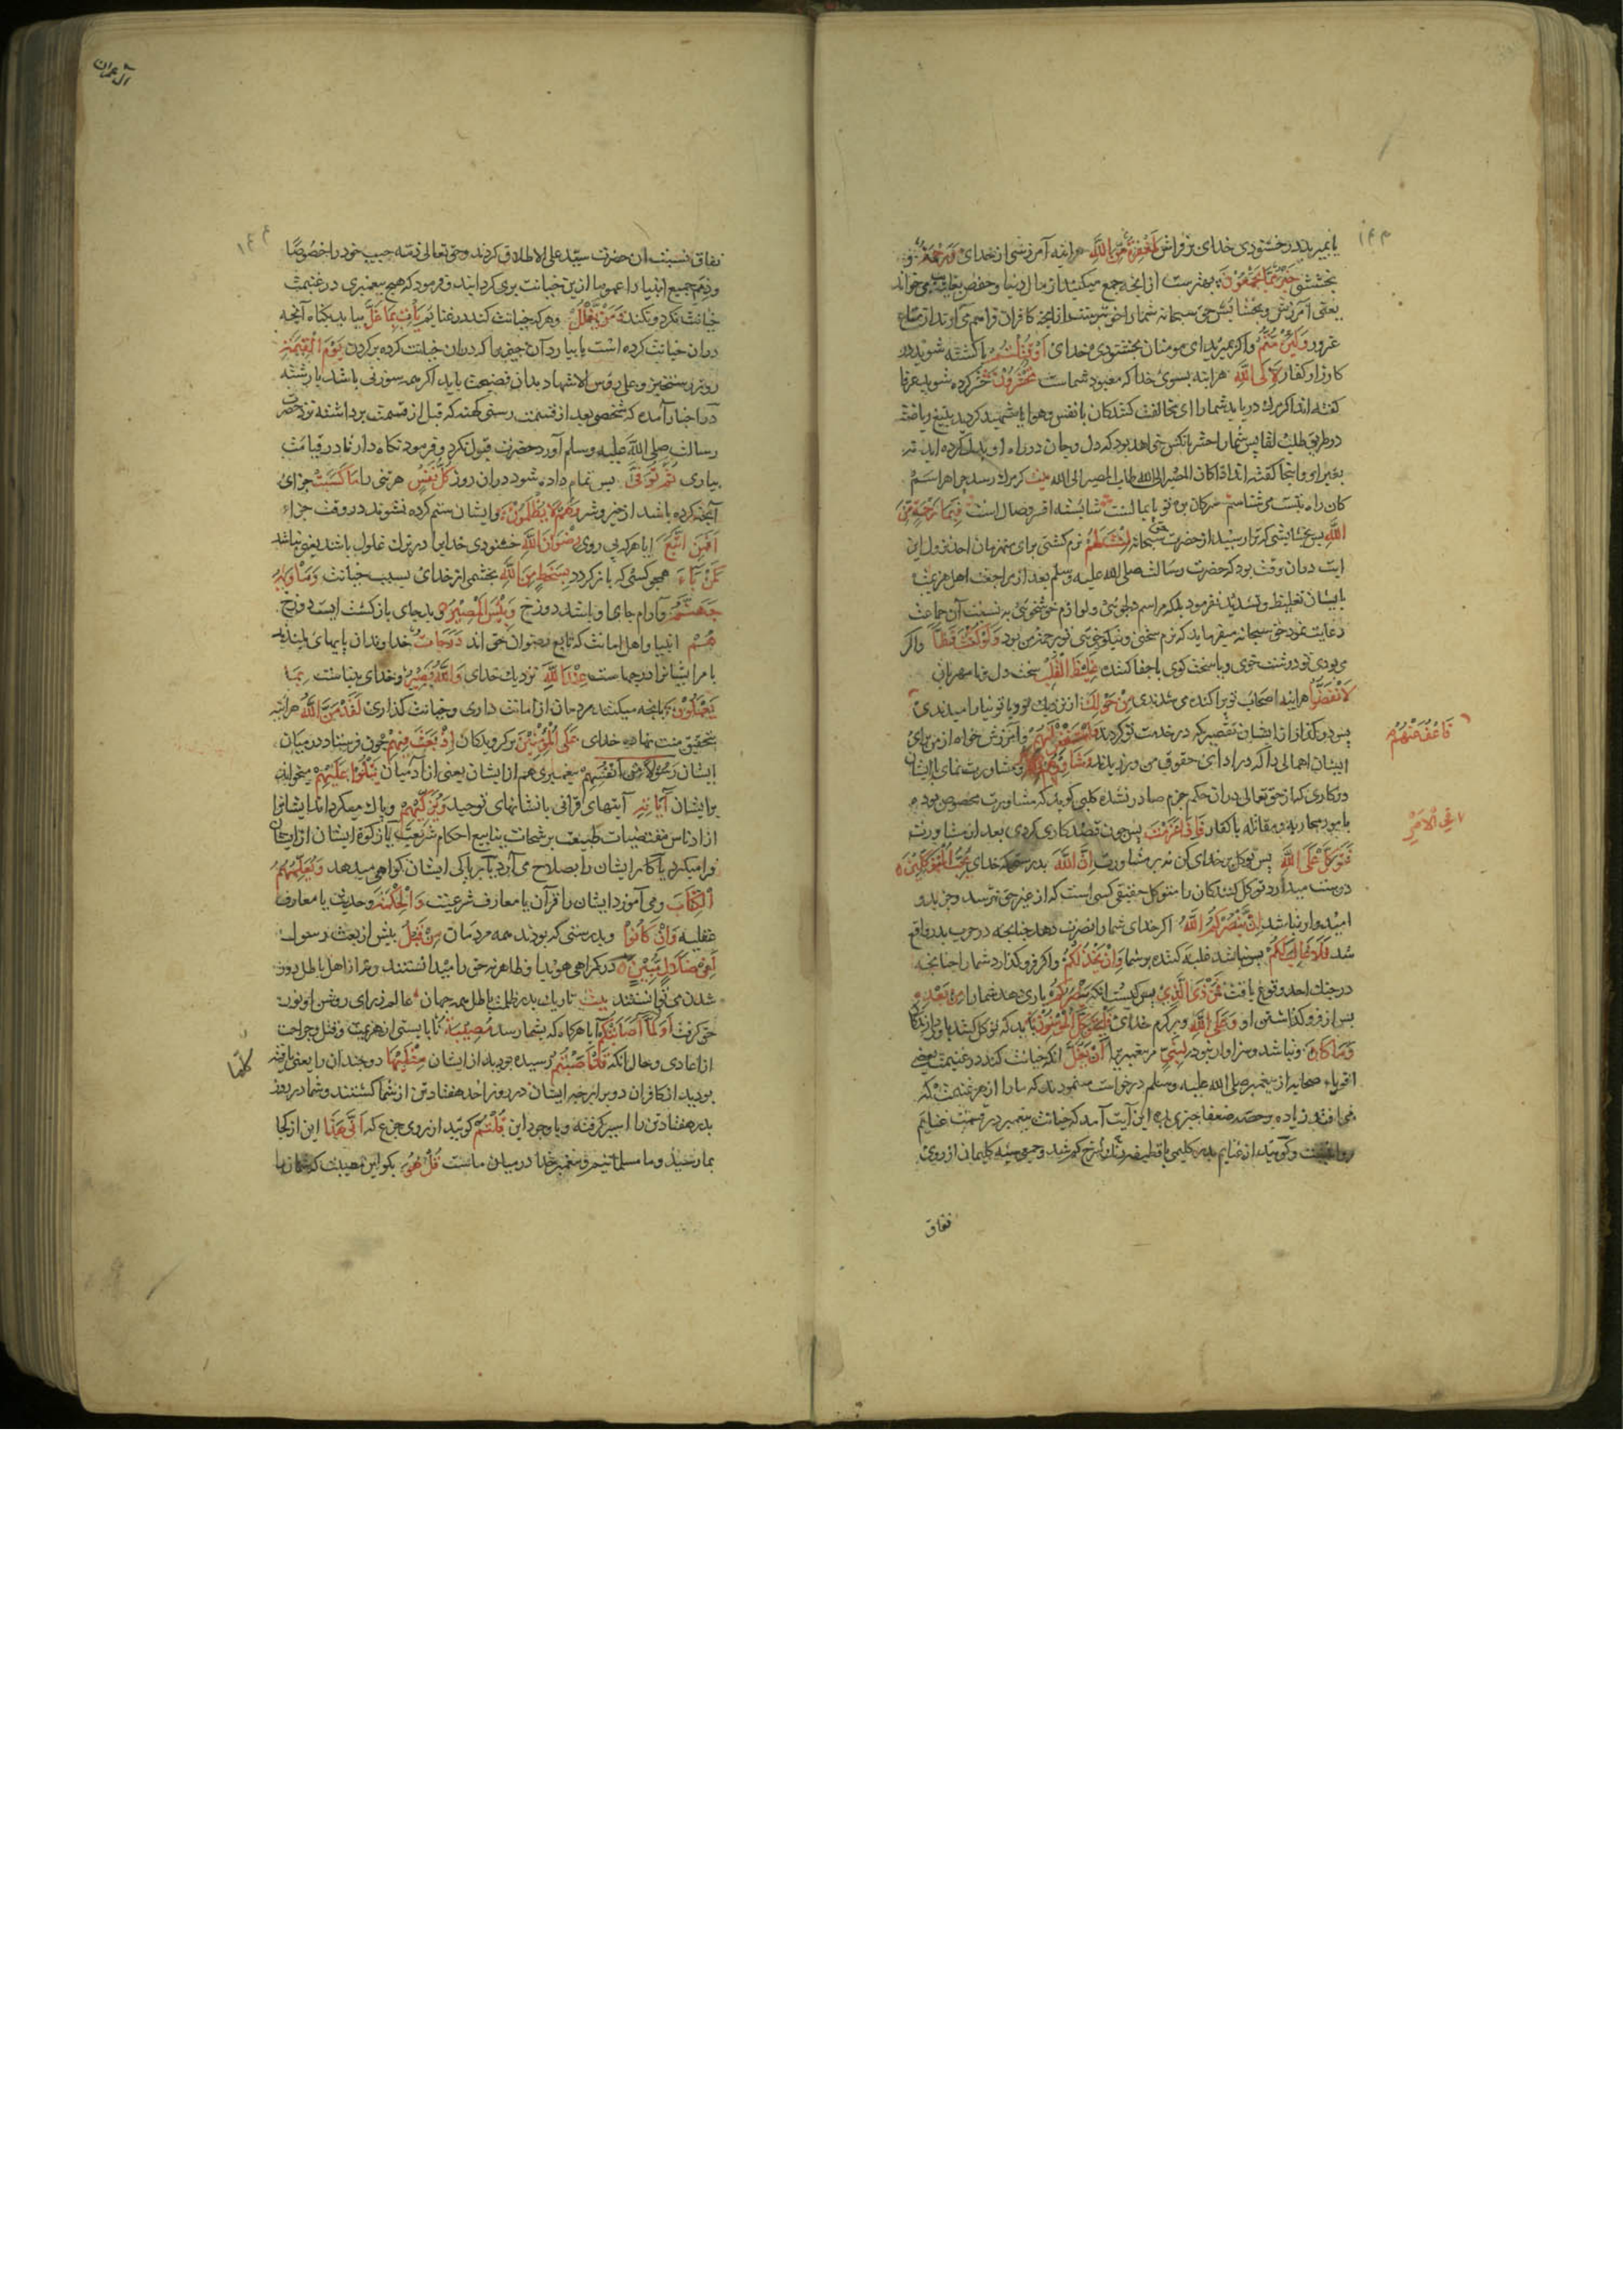 یا بمیرید در خشنودی خدای بر فراش لَمَغْفِرَةٌ مِنَ اللَّهِ هراینه آمرزشی از خدای وَرَحْمَةٌ و
بخششی خَيْرٌ مِمَّا يَجْمَعُونَ بهترست از انچه جمع میکنید از مال دنیا
یعنی آمرزش و بخشایش حق سبحانه شما را خوشترست از انچه کافران فراهم می آورند از متاع
غرور وَلَئِنْ مُتُّمْ واگر بمیرید ای مومنان بخشنودی خدای اَوْ قُتِلْتُمْ یا کشته شوید در
کارزار کفار لَاِلَی اللَّهِ هراینه بسوی خدا که معبود شماست تُحْشَرُونَ حشر کرده شوید عرفا
کفته اند اکر مرك دریابد شما را ای مخالفت کنندکان با نفس وهوا یا شهید کردید بتیغ ریاضت
در طریق طلب لقا پس شما را حشر با نکس خواهد بود که دل وجان در راه او بذل کرده اید
کان راه بتست می شناسم شایسته افسر وصال است فَبِمَا رَحْمَةٍ مِنَ
اللَّهِ پس بخشایشی که ترا رسید از حضرت حق سبحانه لِنْتَ لَهُمْ نرم کشتی برای منهزمان احد نزول این
ایت دران وقت بود که حضرت رسالت صلی الله علیه وسلم بعد از مراجعت اهل هزیمت
با یشان تغلیظ وتشدید نفرمود بلکه مراسم دلجوئی ولوازم خوشخوئی به نسبت آن جماعت
رعایت نمود حق سبحانه میفرماید که نرم سخنی ونیکو خوئی تو برحمت من بود وَلَوْ كُنْتَ فَظًّا واکر
می بودی تو درشت خوی یا سخت کوی یا جفا کننده غَلِيظَ الْقَلْبِ سخت دل نا مهربان
لَانْفَضُّوا هراینه اصحاب تو پراکنده می شدندی مِنْ حَوْلِكَ از نزدیك تو وبا تو نیارامیدندی
فَاعْفُ عَنْهُمْ
پس در کذار از ایشان تقصیری که در خدمت تو کردند وَاسْتَغْفِرْ لَهُمْ وآمرزش خواه از من برای
ایشان اهمالی را که در ادای حقوق من ورزیدند وَشَاوِرْهُمْ ومشاورت نمای با ایشان
فِي الْاَمْرِ
در کاری که از حق تعالی دران حکم جزم صادر نشده کلبی کوید که مشاورت مخصوص بود
بامور محاربه ومقاتله با کفار فَاِذَا عَزَمْتَ پس چون قصد کاری کردی بعد از مشاورت
فَتَوَكَّلْ عَلَى اللَّهِ پس توکل بر خدای کن نه بر مشاورت اِنَّ اللَّهَ بدرستیکه خدای يُحِبُّ الْمُتَوَكِّلِينَ
دوست میدارد توکل کنندکان را متوکل حقیقی کسی است که از غیر حق نترسد وجز بدو
امیدوار نباشد اِنْ يَنْصُرْكُمُ اللَّهُ اکر خدای شما را نصرت دهد چنانچه در حرب بدر واقع
شد فَلَا غَالِبَ لَكُمْ پس نباشد غلبه کننده بر شما وَاِنْ يَخْذُلْكُمْ واکر فرو کذارد شما را چنانچه
در جنك احد وقوع یافت فَمَنْ ذَا الَّذِي پس کیست انکه يَنْصُرُكُمْ یاری دهد شما را مِنْ بَعْدِهِ
پس از فرو کذاشتن او وَعَلَى اللَّهِ وبر کرم خدای فَلْيَتَوَكَّلِ الْمُؤْمِنُونَ باید که توکل کنند
وَمَا كَانَ ونباشد وسزاوار نبود لِنَبِيٍّ مر پیغمبری را اَنْ يَغُلَّ انکه خیانت کند در غنیمت بعضی
اقویاء صحابه از پیغمبر صلی الله علیه وسلم درخواست مینمودند که ما را از هر غنیمت که
می افتد زیاده بر حصه ضعفا چیزی بده این آیت آمد که خیانت پیغمبر در قسمت غنایم
روا نیست وکویند از غنایم بدر کلیمی یا قطیفه سرخ کم شد وجمعی سیه کلیمان از روی
نفاق
آل عمران
نفاق نسبت ان حضرت سیّد علی الاطلاق کردند وحق تعالی ذمّه حبیب خود را خصوصًا
وذمم جمیع انبیا را عموما ازین خیانت بری کردانید وفرمود که هیچ پیغمبری در غنیمت
خیانت نکرد ونکند وَمَنْ يَغْلُلْ وهر که خیانت کند در غنایم يَأْتِ بِمَا غَلَّ بیاید بکناه آنچه
دران خیانت کرده است یا بیارد آن چیزی را که دران خیانت کرده بر کردن يَوْمَ الْقِيٰمَةِ
روز رستخیز وعلی رؤس الاشهاد بدان فضیحت یابد اکر همه سوزنی باشد یا رشته
در اخبار آمده که شخصی بعد از قسمت رسنی کهنه که قبل از قسمت برداشته نزد حضرت
رسالت صلی اللَّه علیه وسلم آورد حضرت قبول نکرد وفرمود نکاه دار تا در قیامت
بیاری ثُمَّ تُوَفّٰى پس تمام داده شود دران روز كُلُّ نَفْسٍ هر تنی را مَا كَسَبَتْ جزای
آنچه کرده باشد از خیر وشر وَهُمْ لَا يُظْلَمُونَ وایشان ستم کرده نشوند در وقت جزاء
اَفَمَنِ اتَّبَعَ ایا هر که پی روی رِضْوَانَ اللَّهِ خشنودی خدا را در ترك غلول باشد یعنی نباشد
كَمَنْ بَاءَ همچو کسی که باز کردد بِسَخَطٍ مِنَ اللَّهِ بخشمی از خدای بسبب خیانت وَمَأْوٰيهُ
جَهَنَّمُ وآرام جای او باشد دوزخ وَبِئْسَ الْمَصِيرُ وبد جای باز کشت است دوزخ
هُمْ انبیا واهل امانت که تابع رضوان حق اند دَرَجَاتٌ خداوندان پایهای بلندند
یا مر ایشانرا درجهاست عِنْدَ اللَّهِ نزدیك خدای وَاللَّهُ بَصِيرٌ وخدای بیناست بِمَا
يَعْمَلُونَ بانچه میکنند مردمان از امانت داری وخیانت کذاری لَقَدْ مَنَّ اللَّهُ هراینه
بتحقیق منت نهاد خدای عَلَى الْمُؤْمِنِينَ بر کرویدکان اِذْ بَعَثَ فِيهِمْ چون فرستاد در میان
ایشان رَسُولًا مِنْ اَنْفُسِهِمْ پیغمبری هم از ایشان یعنی از آدمیان يَتْلُوا عَلَيْهِمْ میخواند
بر ایشان آيَاتِهِ آیتهای قرانی یا نشانهای توحید وَيُزَكِّيهِمْ وپاك میکرداند ایشانرا
از ادناس مقتضیات طبیعت برشحات ینابیع احکام شریعت یا زکوة ایشان از ایشان
فرا میکیرد یا کار ایشان را بصلاح می آرد یا بر پاکی ایشان کواهی میدهد وَيُعَلِّمُهُمُ
الْكِتَابَ ومی آموزد ایشان را قرآن یا معارف شرعیت وَالْحِكْمَةَ وحدیث یا معارف
عقلیه وَاِنْ كَانُوا وبدرستی که بودند همه مردمان مِنْ قَبْلُ پیش از بعث رسول
لَفِي ضَلَالٍ مُبِينٍ در کمراهی هویدا وظاهر نه حق را میدانستند ونه از اهل باطل دور
شدن می توانستند بیت تاریك بد ز ظلمت باطل همه جهان عالم ز رای روشن او نور
حق کرفت اَوَلَمَّا اَصَابَتْكُمْ آیا هرکاه که بشما رسد مُصِيبَةٌ نا بایستی از هزیمت وقتل وجراحت
کلّما
از اعادی وحال آنکه قَدْ اَصَبْتُمْ رسیده بودید از ایشان مِثْلَيْهَا دو چندان را یعنی یافته
بودید از کافران دو برابر چه ایشان در روز احد هفتاد تن از شما کشتند وشما در روز
بدر هفتاد تن را اسیر کرفته وبا وجود این قُلْتُمْ کویید از روی جزع که اَنّٰى هٰذَا این از کجا
بما رسید وما مسلمانیم وپیغمبر خدا در میان ماست قُلْ هُوَ بکو این مصیبت که شما را